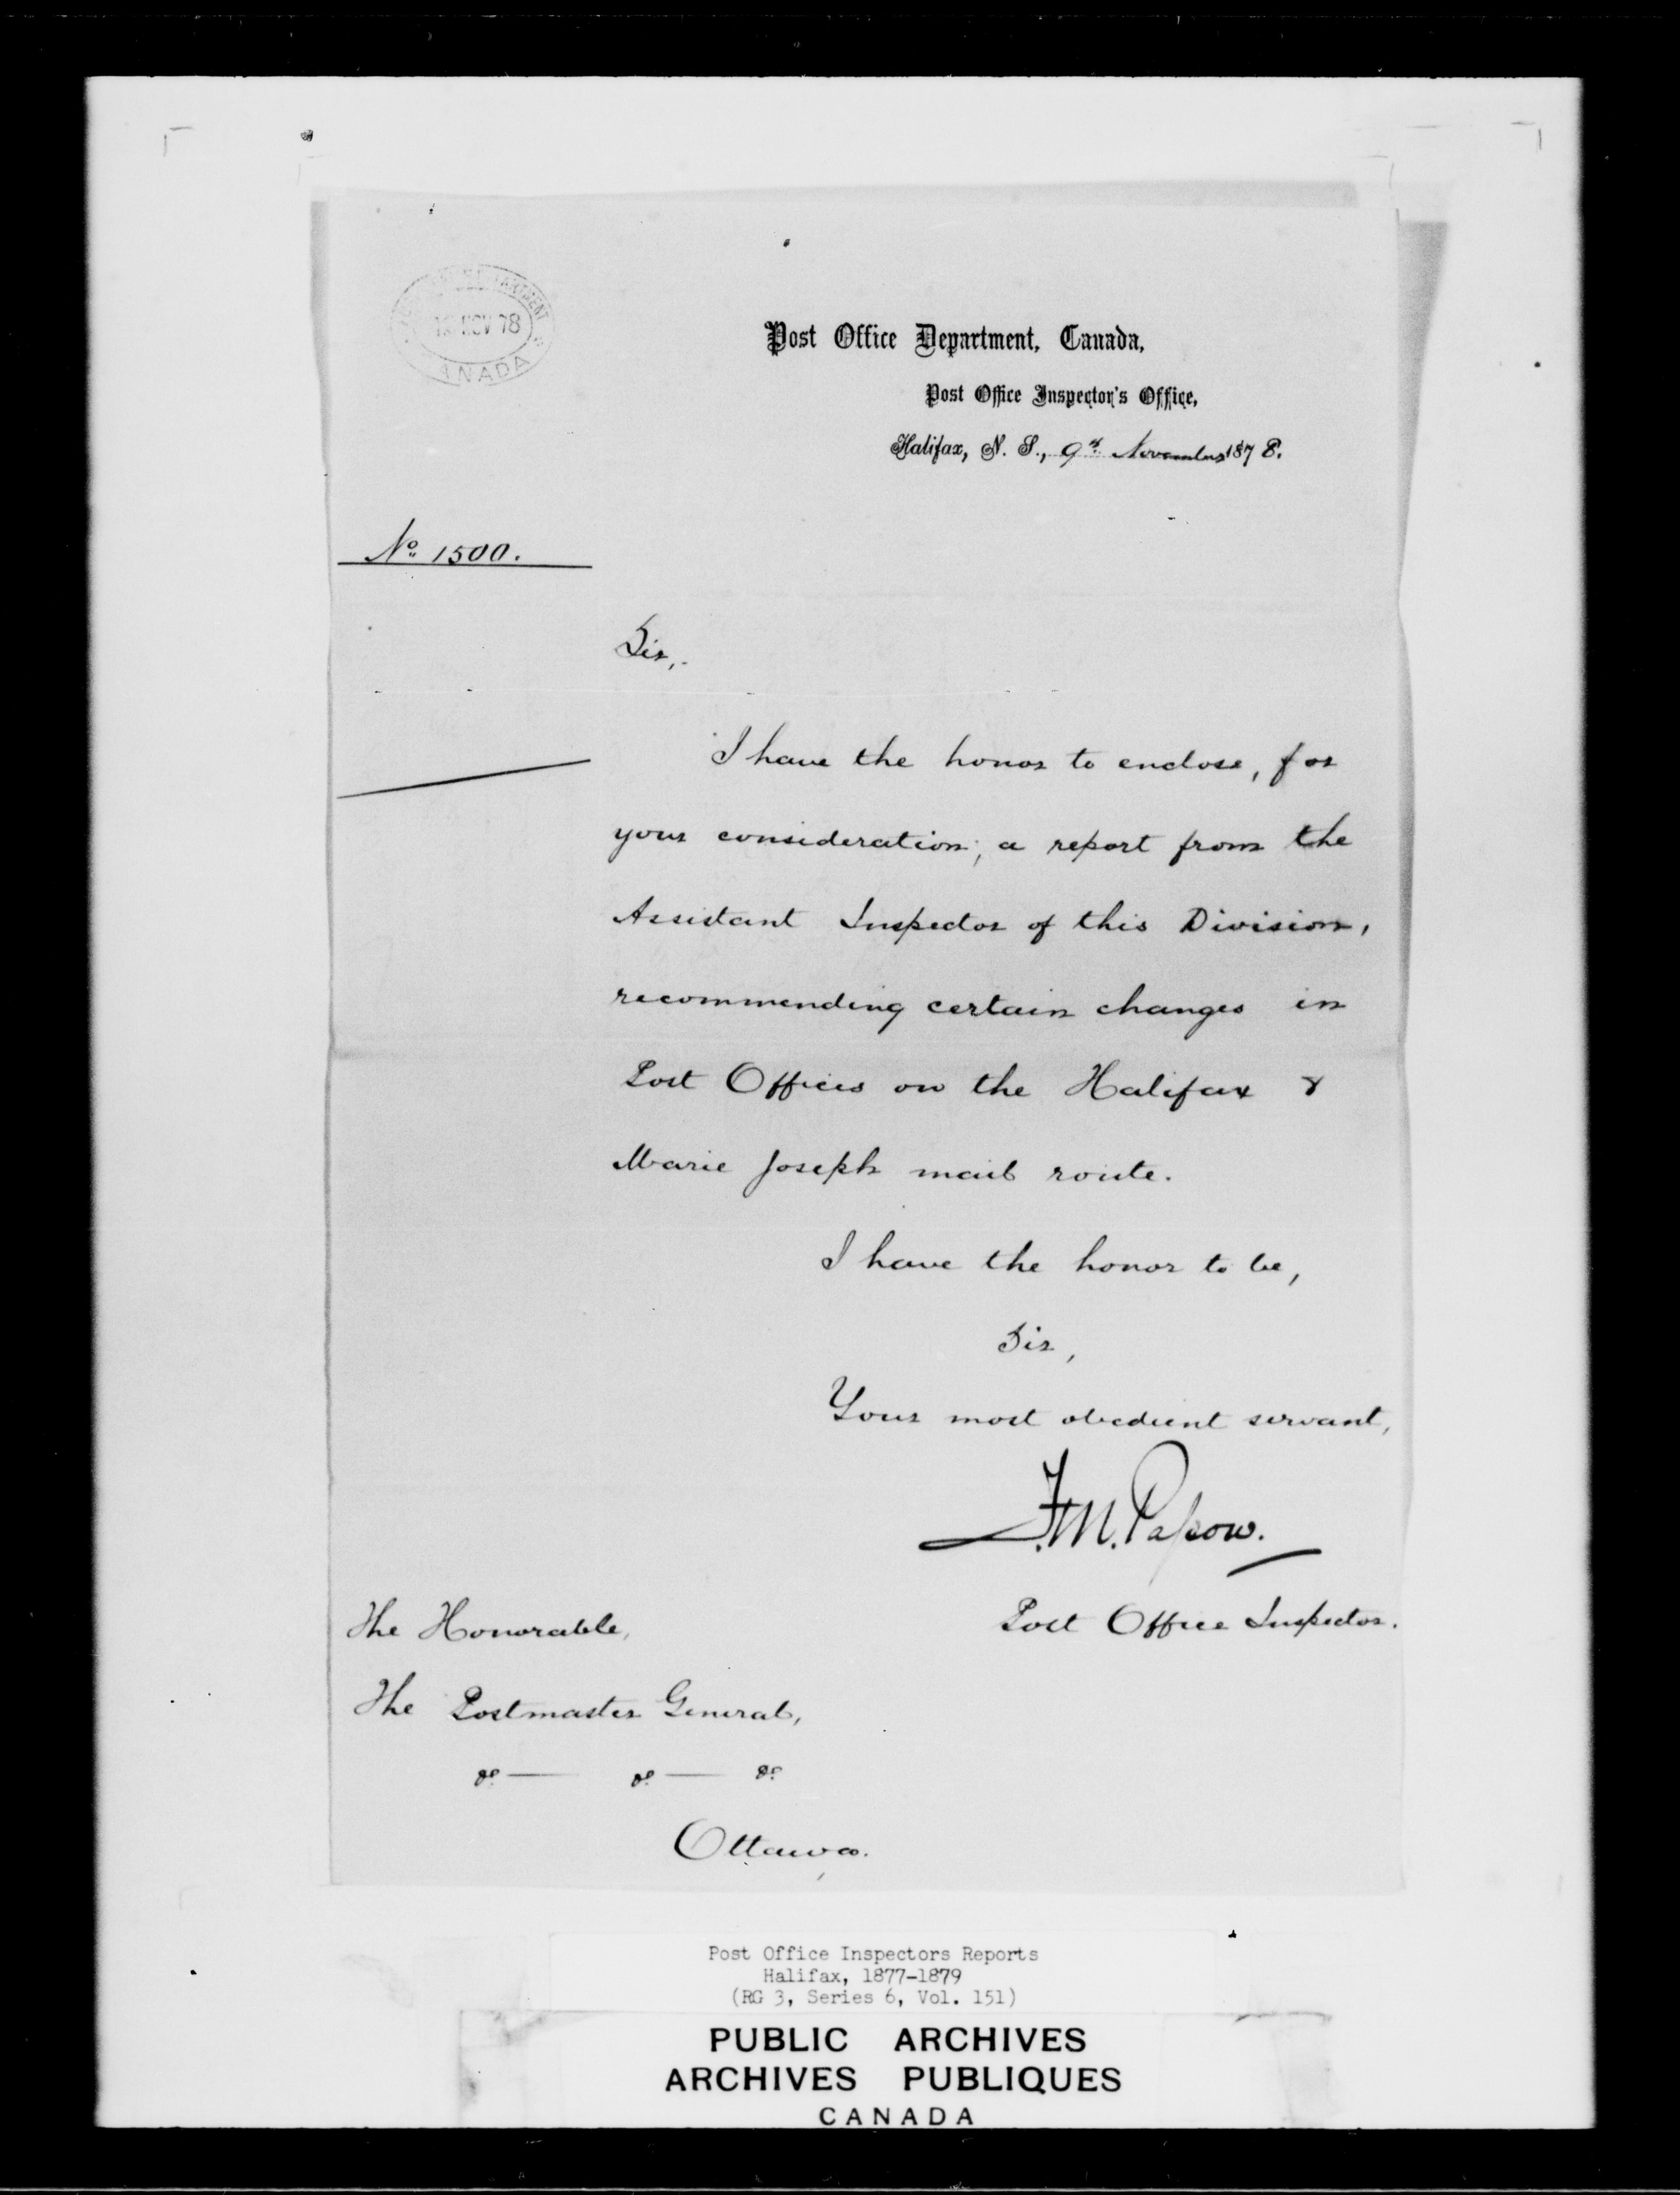 DEPARTMENT
NOV 78
CANADA
Post Office Department, Canada,
Post Office Inspector's Office,
Halifax, N. S., 9th November 1878.
No. 1500.
Sir,
I have the honor to enclose, for
your consideration, a report from the
Assistant Inspector of this Division,
recommending certain changes in
Post Offices on the Halifax &
Marie Joseph mail route.
I have the honor to be,
Sir,
Your most obedient servant,
F.M. Passow.
Post Office Inspector.
The Honorable,
The Postmaster General,
&c — &c — &c
Ottawa.
Post Office Inspectors Reports
Halifax, 1877-1879
(RG 3, Series 6, Vol. 151)
PUBLIC ARCHIVES
ARCHIVES PUBLIQUES
CANADA